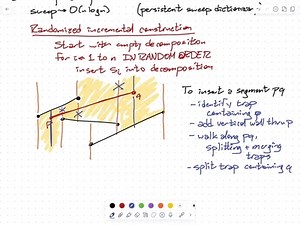 sweep → O(n log n) (persistent sweep dictionary)
Randomized incremental construction
Start with empty decomposition
for i = 1 to n IN RANDOM ORDER
insert si into decomposition
To insert a segment pq
- identify trap
containing p
- add vertical wall thru p
- walk along pq,
splitting + merging
traps
- split trap containing q
p
q